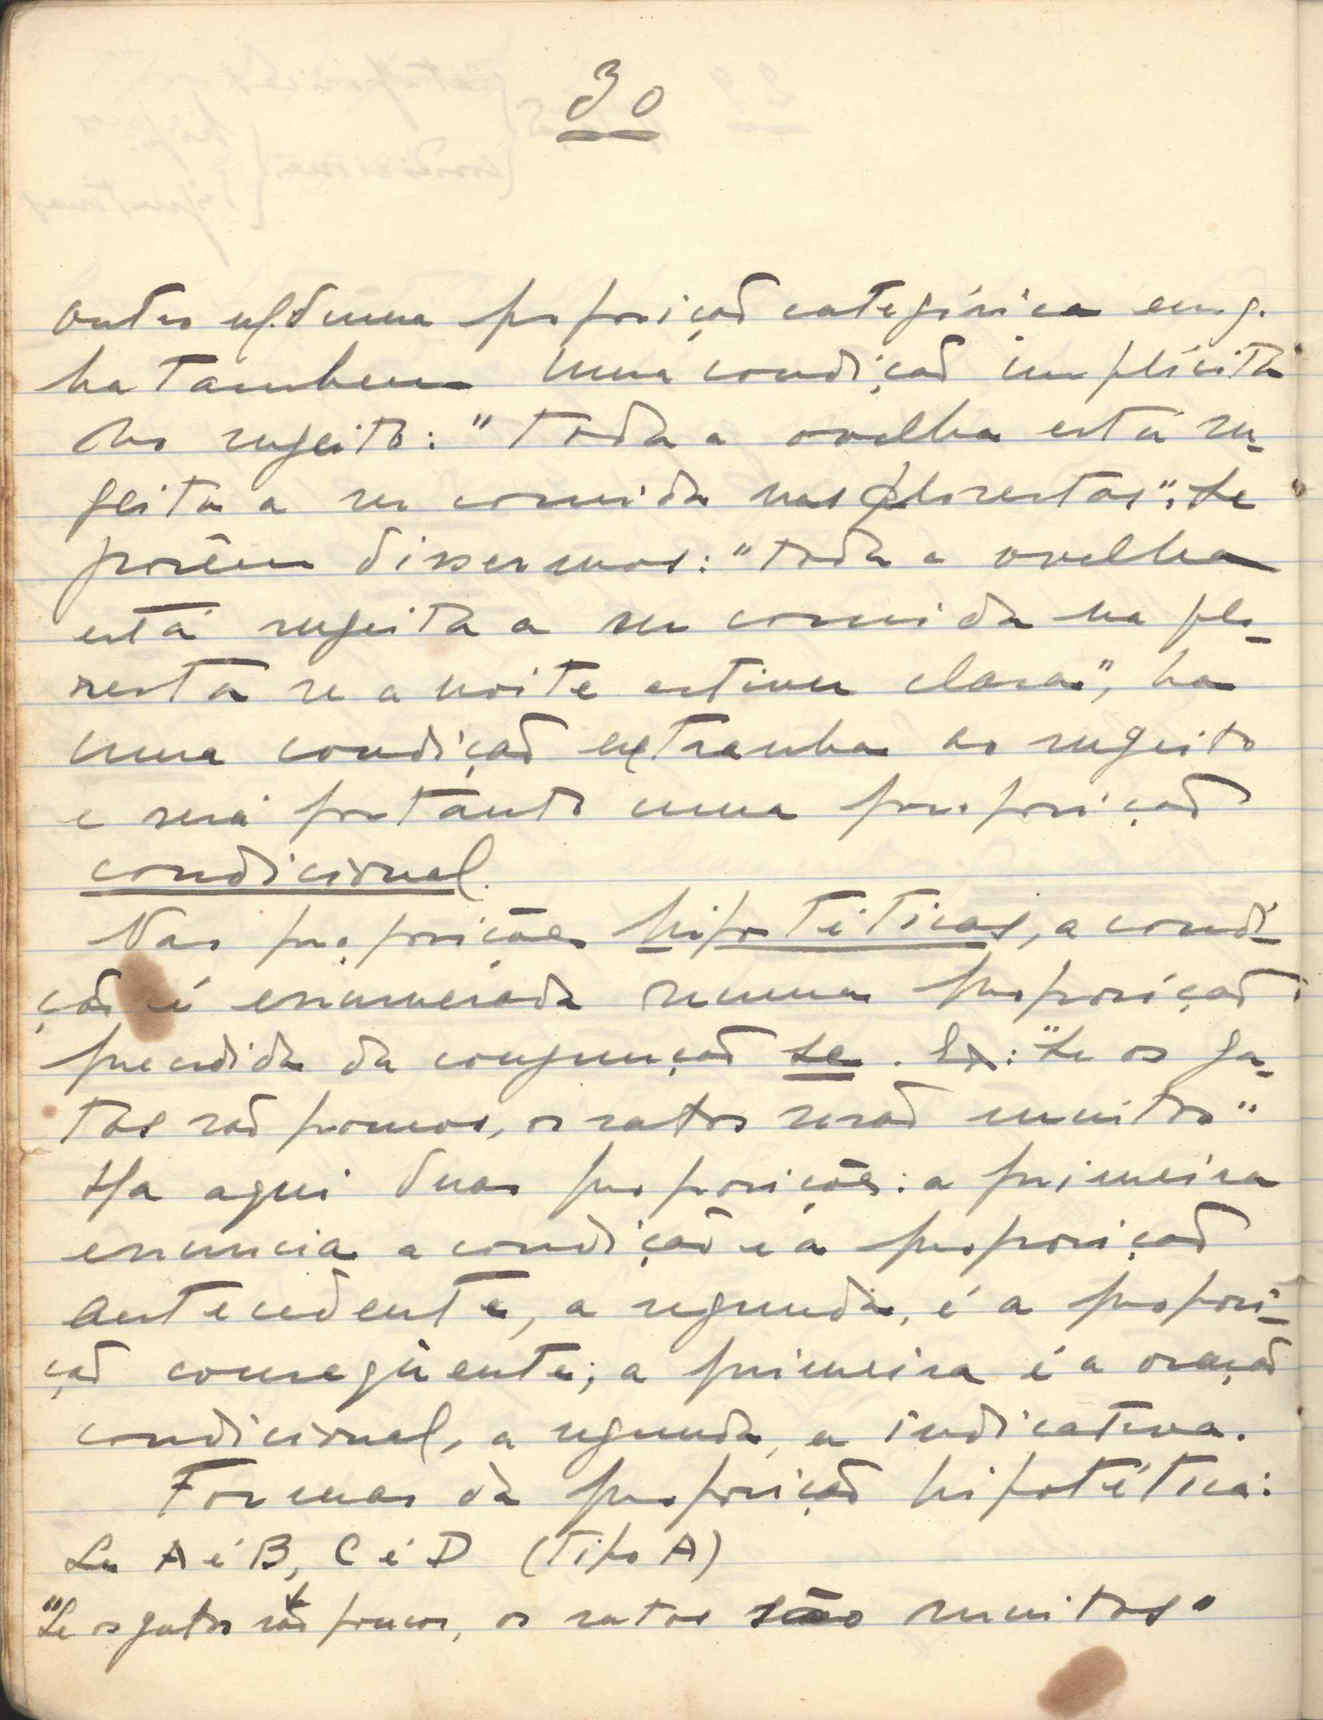 30
antes uma proposição categórica em q.
ha tambem uma condição implícita
no sugeito: "Toda a ovelha está su-
geita a ser comida nas florestas"; se
porêm dissermos: "toda a ovelha
está sugeita a ser comida na flo-
resta se a noite estiver clara", ha
uma condição extranha ao sugeito
e será portanto uma proposição
condicional.
Nas proposições hipotéticas, a condi-
ção é enumerada numa proposição
precedida da conjunção se. Ex: "Se os ga-
tos são poucos, os ratos serão muitos"
Ha aqui duas proposições: a primeira
enuncia a condição e é a proposição
antecedente, a segunda, é a proposi-
ção conseqüente; a primeira é a oração
condicional, a segunda, a indicativa.
Formas da proposição hipotética:
Se A é B, C é D (Tipo A)
"Se os gatos são poucos, os ratos são muitos"